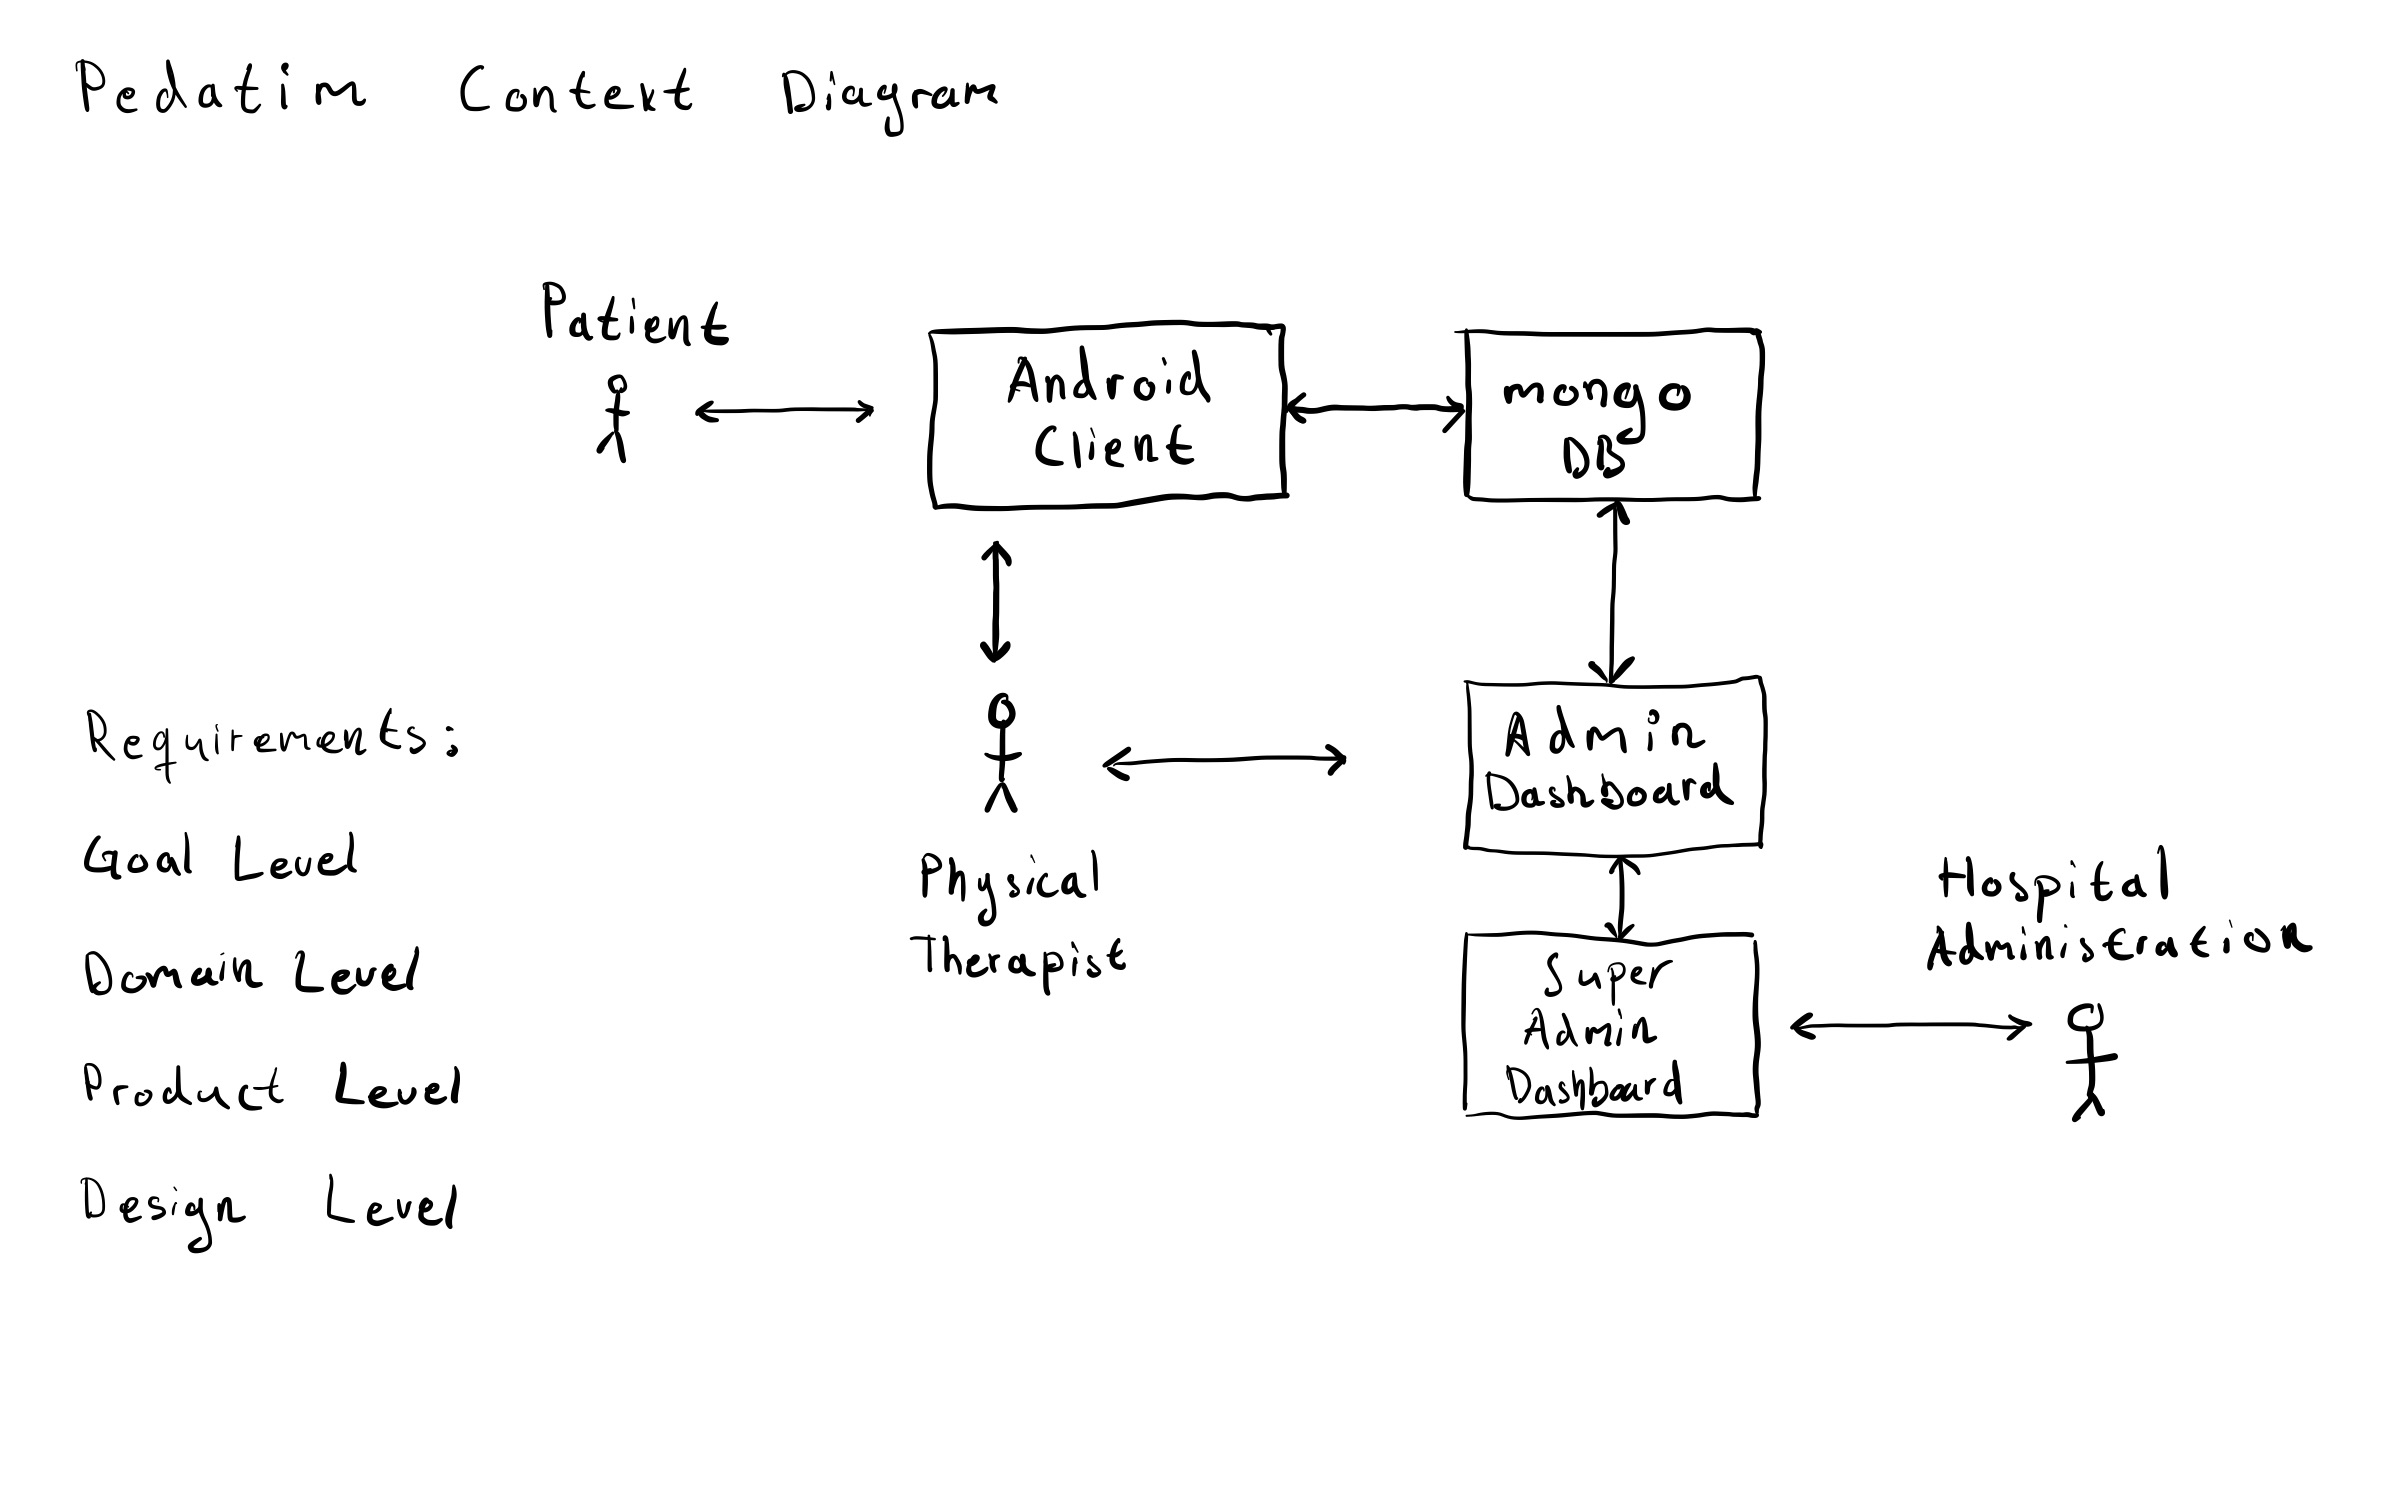 Pedatim Context Diagram
Patient
Android
Client
mongo
DB
Physical
Therapist
Admin
Dashboard
Super
Admin
Dashboard
Hospital
Administration
Requirements:
Goal Level
Domain Level
Product Level
Design Level